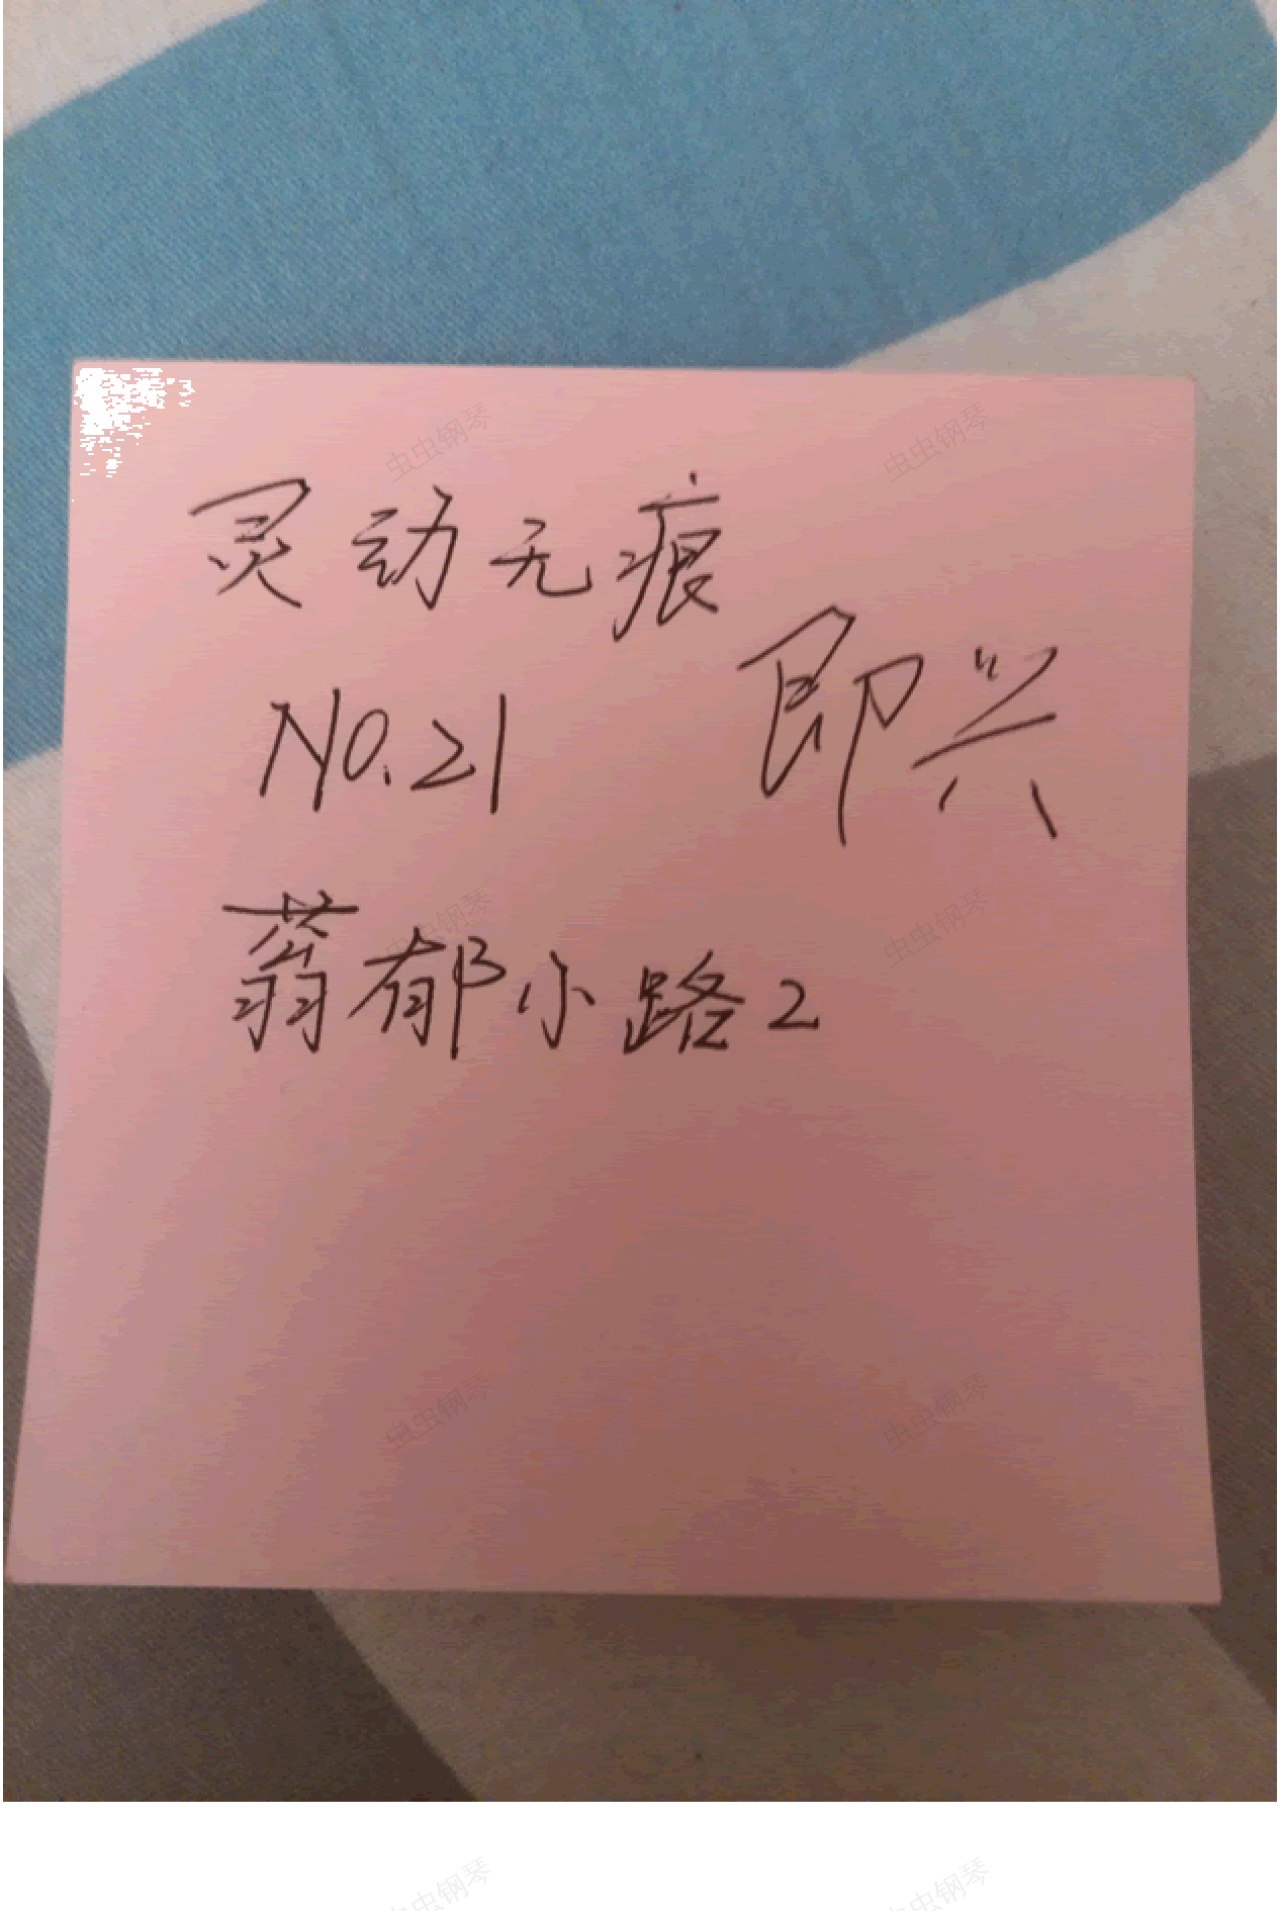 灵动无痕
即兴
No.21
蓊郁小路2
虫虫钢琴
虫虫钢琴
虫虫钢琴
虫虫钢琴
虫虫钢琴
虫虫钢琴
虫虫钢琴
虫虫钢琴